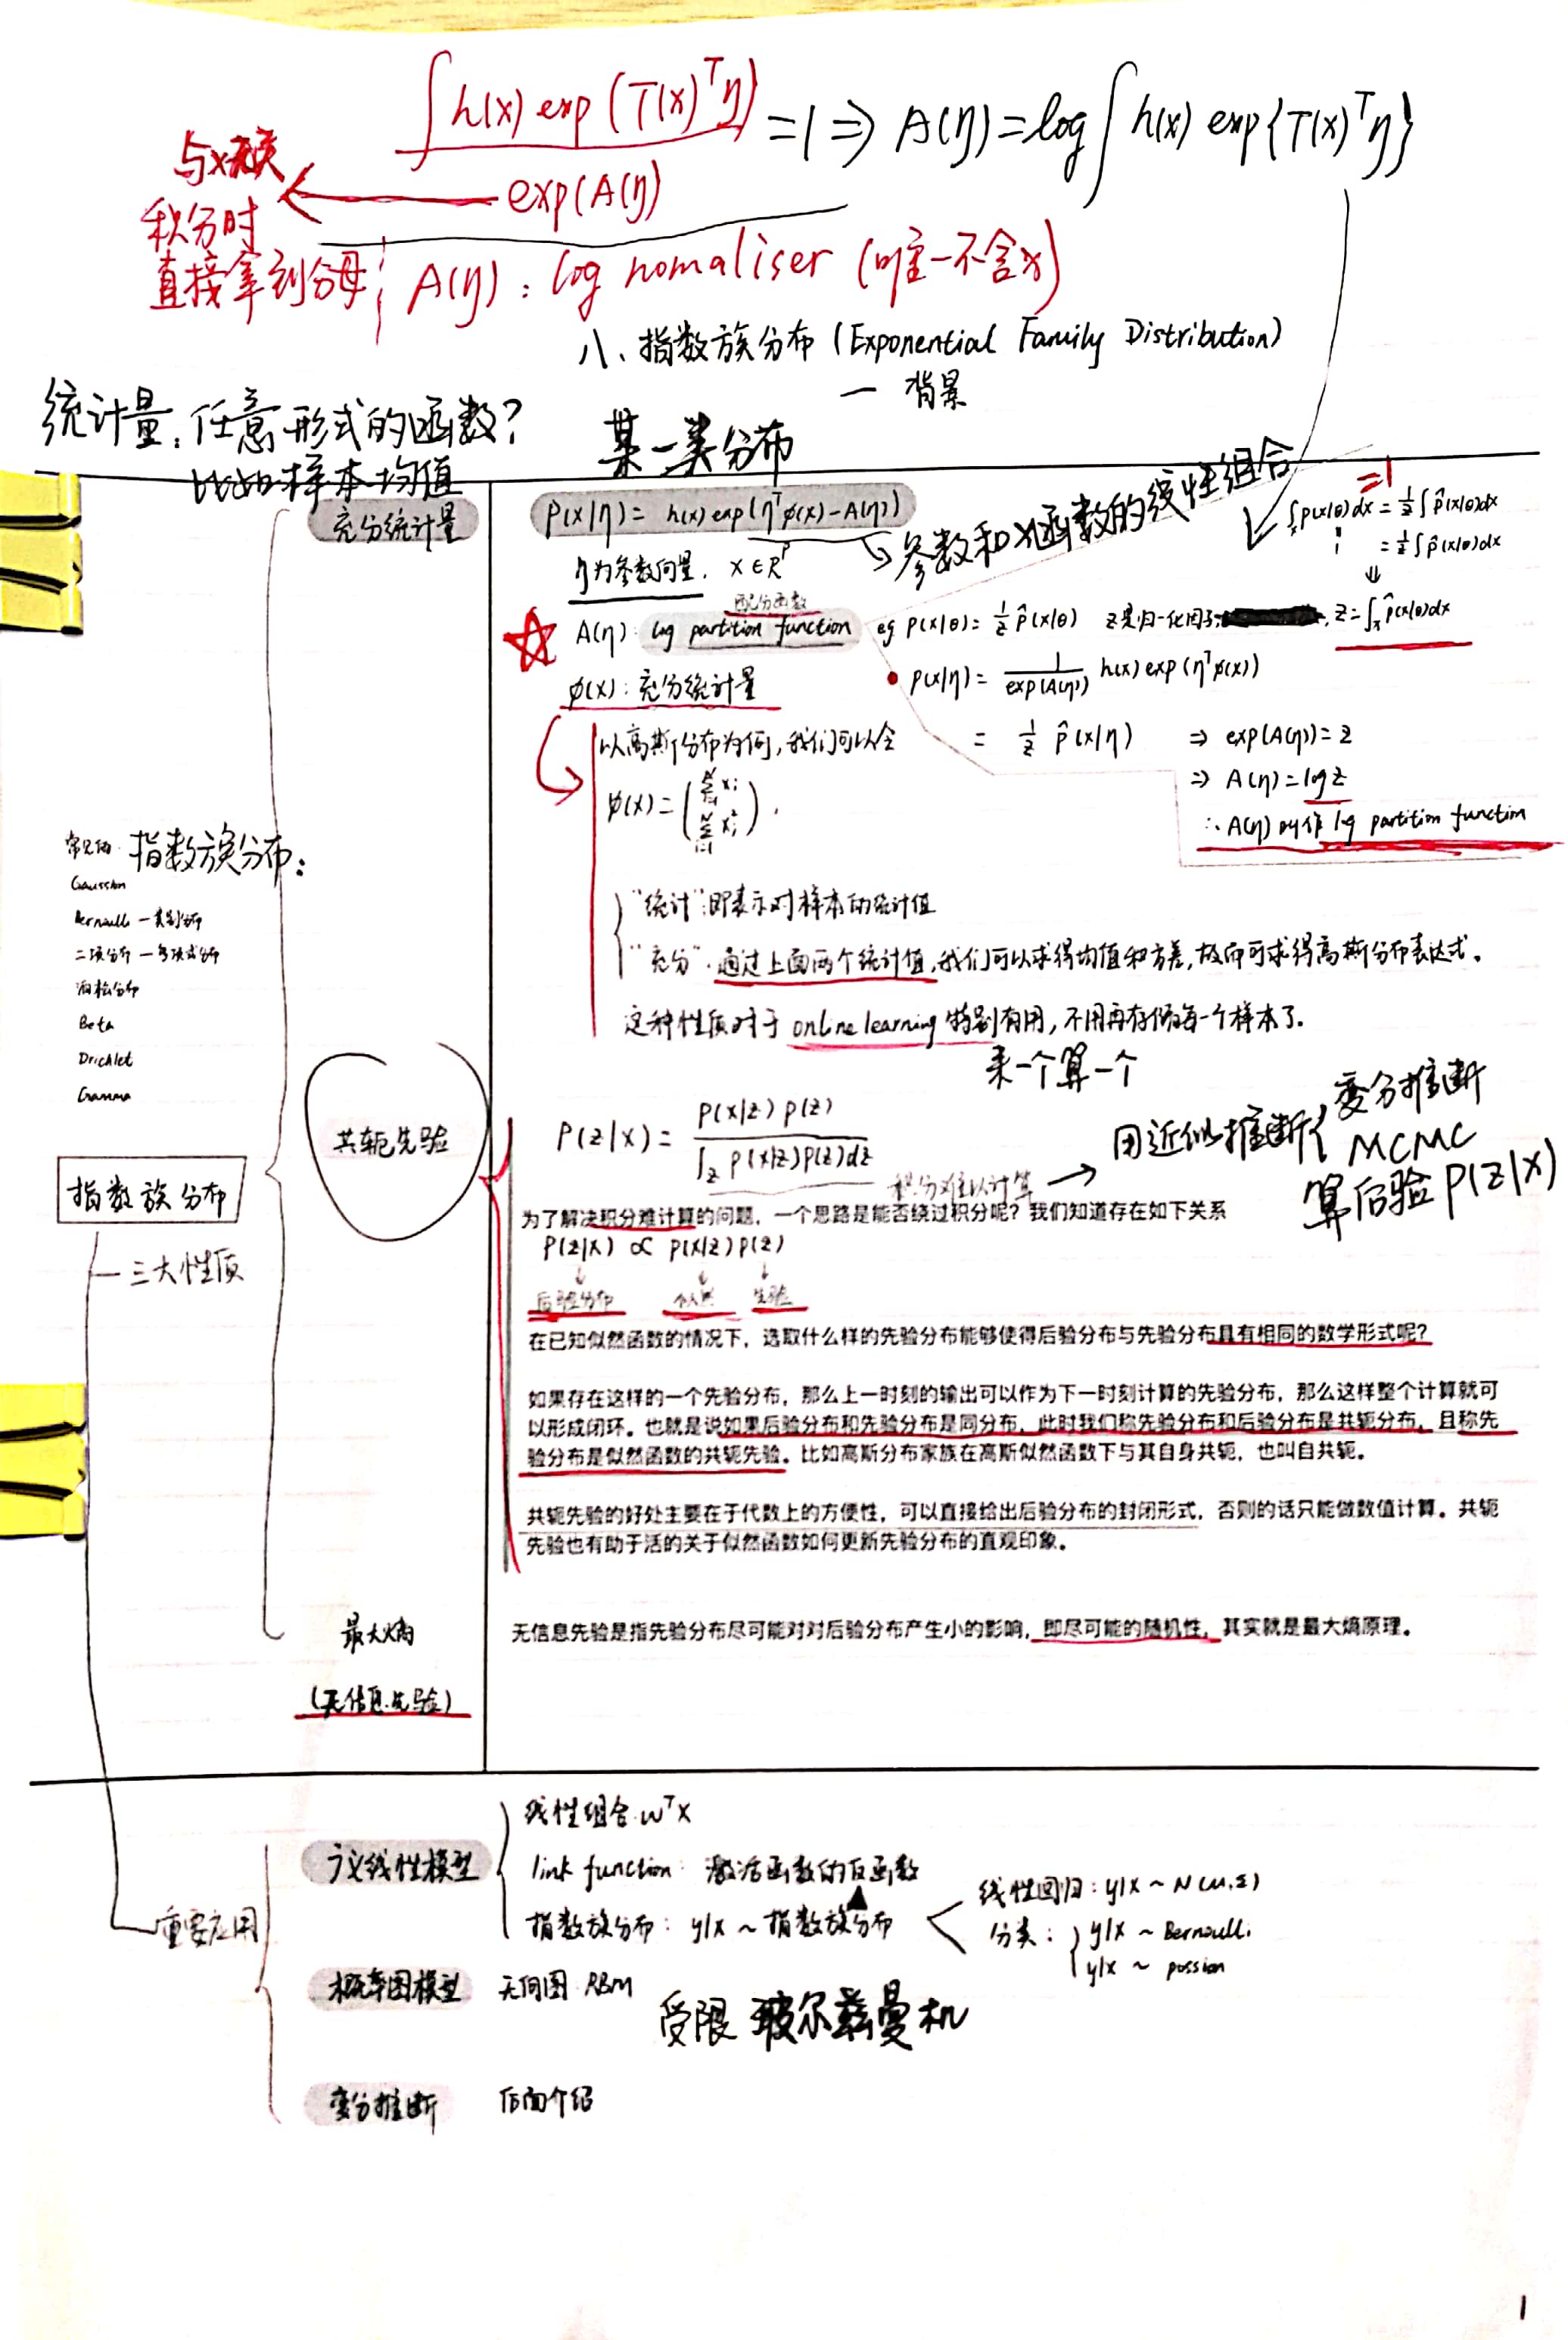 ∫h(x) exp(T(x)ᵀη)
exp(A(η)
=1 ⇒ A(η)=log∫h(x) exp{T(x)ᵀη}
与x无关
积分时
直接拿到分母
A(η): log nomaliser (唯一不含x)
八、指数族分布 (Exponential Family Distribution)
— 背景
统计量: 任意形式的函数?
比如样本均值
某一类分布
充分统计量
P(x|η) = h(x) exp(ηᵀφ(x)-A(η))
参数和x函数的线性组合
=1
∫ₓp(x|θ)dx = 1/z ∫p̂(x|θ)dx
= 1/z ∫p̂(x|θ)dx
⇓
η为参数向量. x∈Rᵖ
配分函数
A(η): log partition function
eg P(x|θ) = 1/z p̂(x|θ) z是归一化因子. z=∫ₓp̂(x|θ)dx
φ(x): 充分统计量
P(x|η) = 1/exp(A(η)) h(x) exp(ηᵀφ(x))
= 1/z p̂(x|η) ⇒ exp(A(η))=z
⇒ A(η)=logz
∴A(η)叫作 log partition function
以高斯分布为例, 我们可以令
φ(x) = (Σxᵢ Σxᵢ²).
"统计": 即表示对样本的统计值
"充分". 通过上面两个统计值, 我们可以求得均值和方差, 故而可求得高斯分布表达式.
这种性质对于 online learning 特别有用, 不用再存储每一个样本了.
来一个算一个
常见的 指数族分布:
Gaussian
Bernoulli — 类别分布
二项分布 — 多项式分布
泊松分布
Beta
Drichlet
Gamma
共轭先验
P(z|x) = P(x|z) p(z) / ∫z P(x|z)P(z)dz
积分难以计算 →
用近似推断{变分推断
MCMC
算后验P(z|x)
为了解决积分难计算的问题，一个思路是能否绕过积分呢？我们知道存在如下关系
P(z|x) ∝ P(x|z) P(z)
后验分布 似然 先验
在已知似然函数的情况下，选取什么样的先验分布能够使得后验分布与先验分布具有相同的数学形式呢？
如果存在这样的一个先验分布，那么上一时刻的输出可以作为下一时刻计算的先验分布，那么这样整个计算就可
以形成闭环。也就是说如果后验分布和先验分布是同分布，此时我们称先验分布和后验分布是共轭分布，且称先
验分布是似然函数的共轭先验。比如高斯分布家族在高斯似然函数下与其自身共轭，也叫自共轭。
共轭先验的好处主要在于代数上的方便性，可以直接给出后验分布的封闭形式，否则的话只能做数值计算。共轭
先验也有助于活的关于似然函数如何更新先验分布的直观印象。
指数族分布
三大性质
最大熵
(无信息先验)
无信息先验是指先验分布尽可能对对后验分布产生小的影响，即尽可能的随机性，其实就是最大熵原理。
重要应用
广义线性模型
线性组合 wᵀx
link function: 激活函数的反函数
指数族分布: y|x ~ 指数族分布
线性回归: y|x ~ N(μ,Σ)
分类: y|x ~ Bernoulli
y|x ~ possion
概率图模型
无向图 RBM
受限玻尔兹曼机
变分推断
后面介绍
1